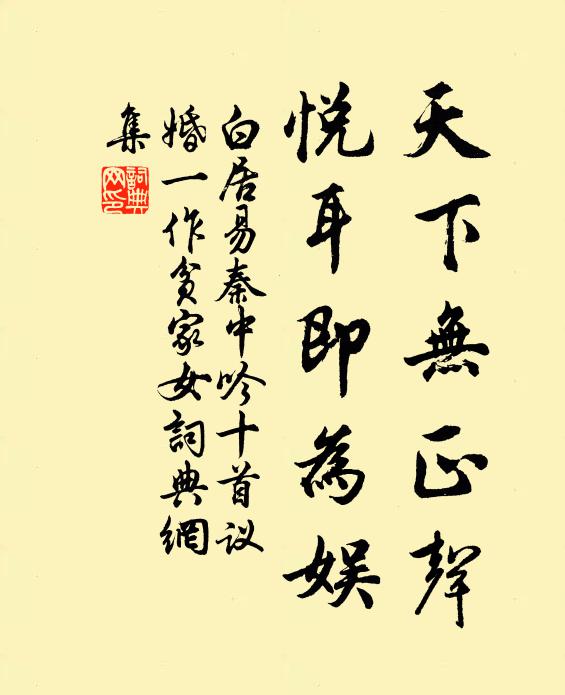 天下無正聲
悅耳即為娱
白居易秦中吟十首议
婚一作貧家女詞典網
集
詞典
网印